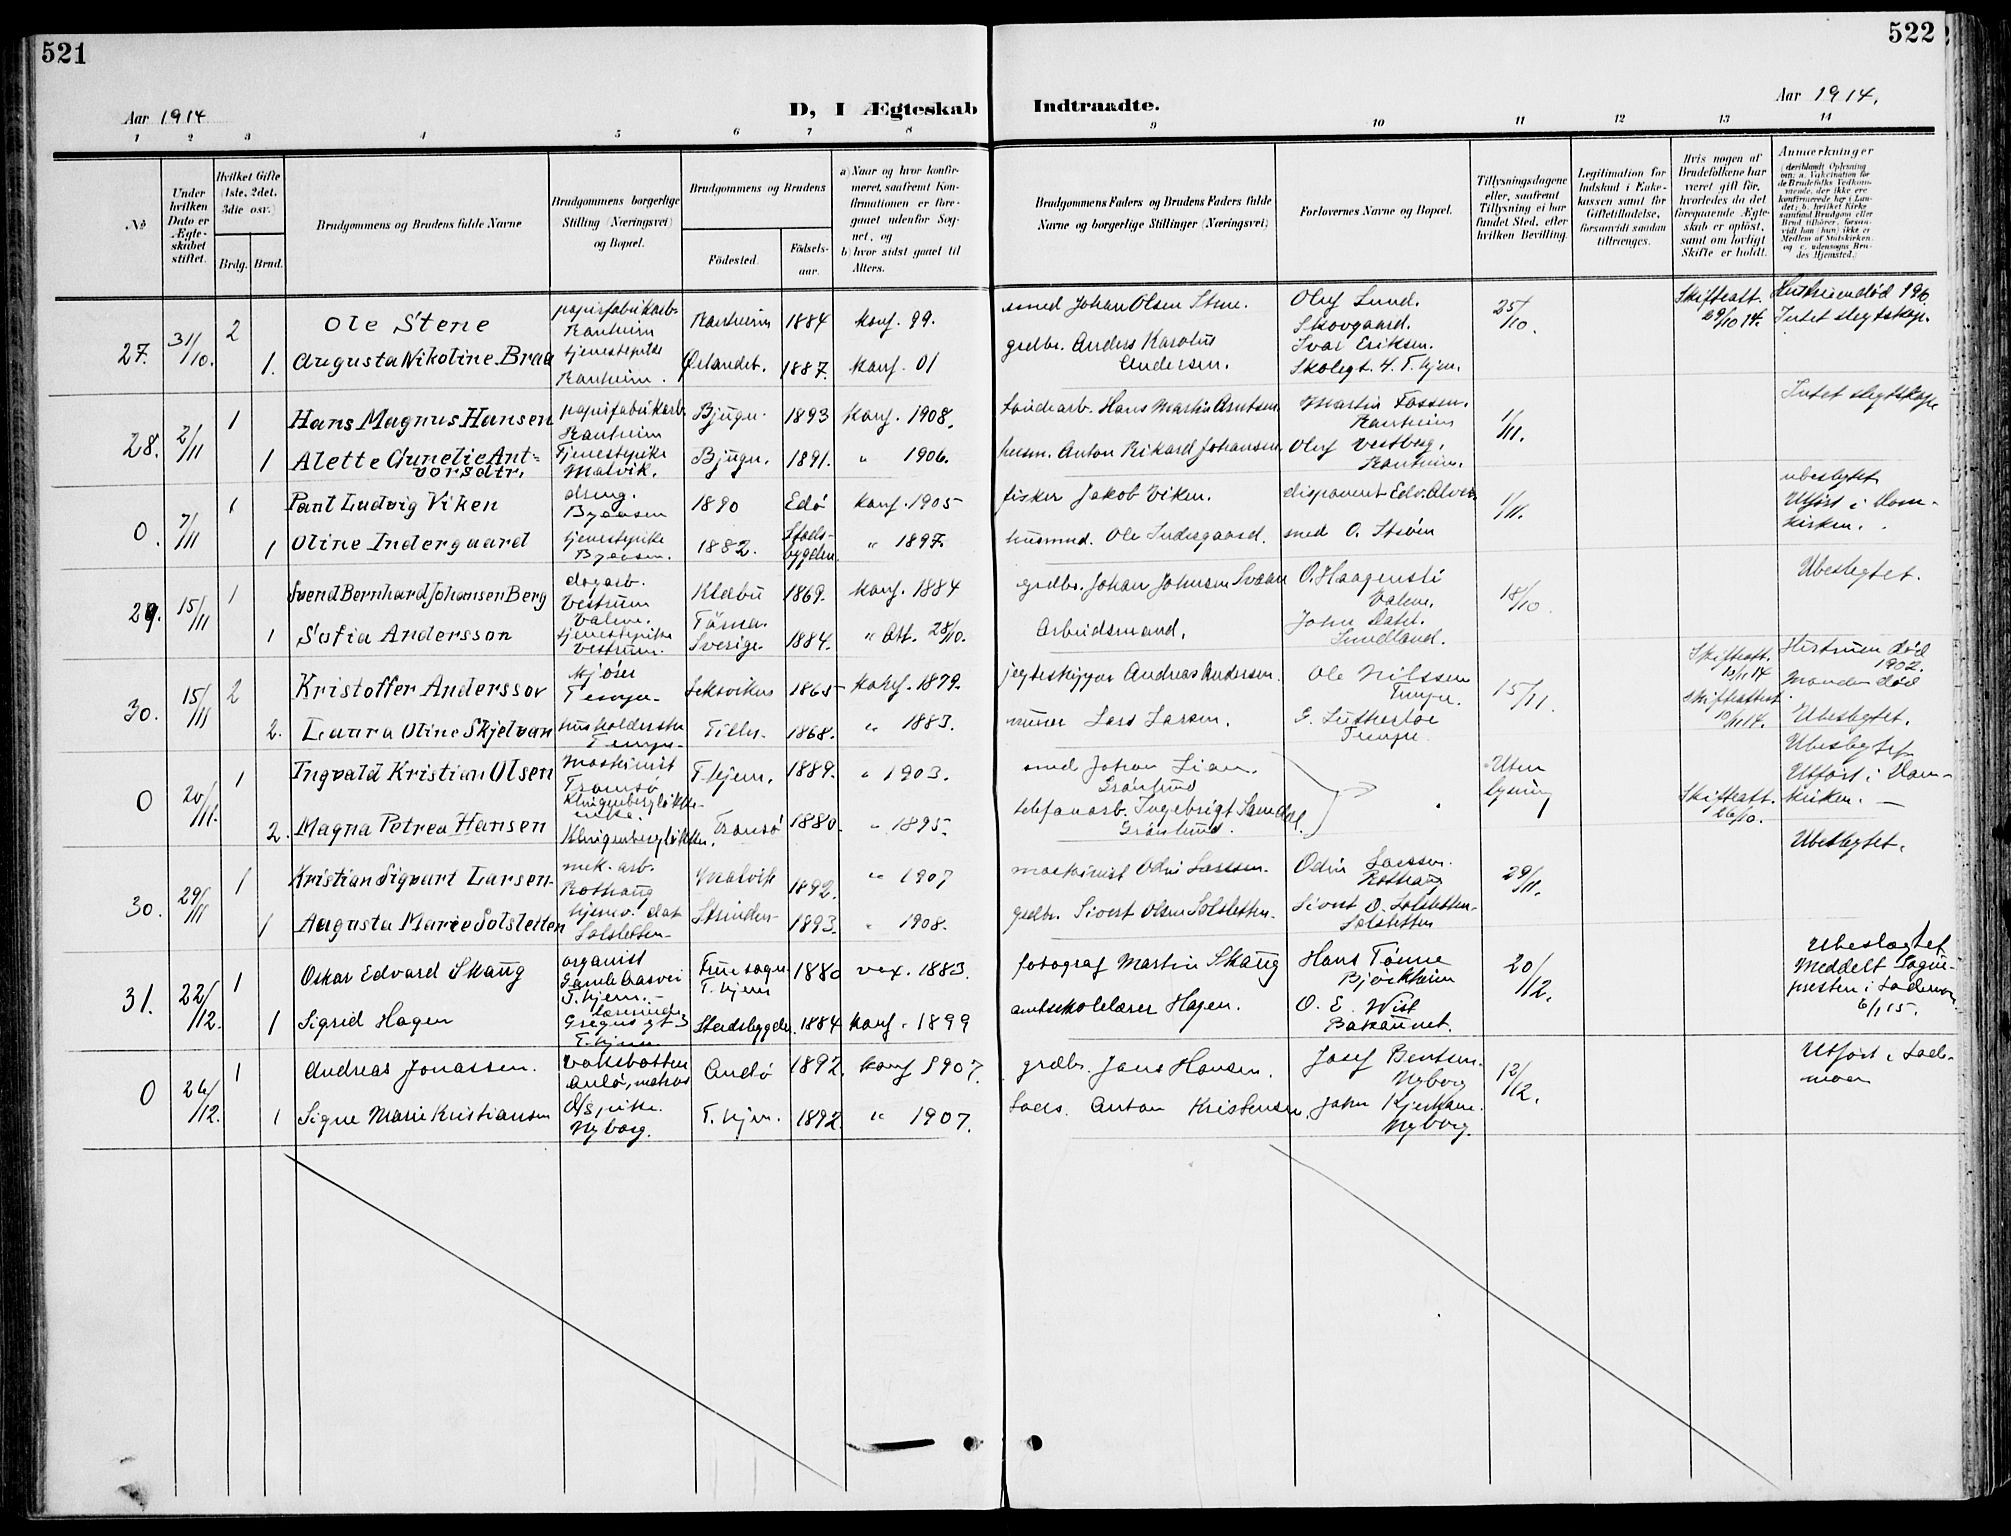 521
522
Aar 1914
D, I Ægteskab Indtraadte.
Aar 1914.
1 2 3 4 5 6 7 8 9 10 11 12 13 14
No
Under hvilken Dato er Ægteskabet stiftet.
Hvilket Gifte (1ste, 2det, 3die osv.)
Brdg. Brud.
Brudgommens og Brudens fulde Navne
Brudgommens borgerlige Stilling (Næringsvei) og Bopæl.
Brudgommens og Brudens
Fødested.
Fødselsaar.
a) Naar og hvor konfirmeret, saafremt Konfirmationen er foregaaet udenfor Sognet, og
b) hvor sidst gaaet til Alters.
Brudgommens Faders og Brudens Faders fulde Navne og borgerlige Stillinger (Næringsvei)
Forlovernes Navne og Bopæl.
Tillysningsdagene eller, saafremt Tillysning ei har fundet Sted, efter hvilken Bevilling.
Legitimation for Indskud i Enkekassen samt for Giftetilladelse, forsaavidt saadan tiltrænges.
Hvis nogen af Brudefolkene har været gift før, hvorledes da det foregaaende Ægteskab er opløst, samt om lovligt Skifte er holdt.
Anmærkninger
27. 31/10. 2 Ole Stene papirfabrikarb. Ranheim Ranheim 1884 konf. 99. smed Johan Olsen Stene. Oluf Lund. Skovgaard. 25/10. Skifteatt. 29/10 14. Intet slegtskap.
1. Augusta Nikoline Braa tjenestepike Ranheim. Ørlandet. 1887. konf. 01 grdbr. Anders Karolus Andersen. Ivar Eriksen. Skolegt. 4. T.hjem.
28. 2/11 1 Hans Magnus Hansen papirfabrikarb. Ranheim Bjugn. 1893 konf. 1908. Hans Martin Arntsen. Martin Fossen. Ranheim 1/11. Intet slegtskap
1 Alette Gunelie Antvorsdtr. Tjenestepike Malvik. Bjugn. 1891. " 1906. husm. Anton Rikard Johansen. Oluf Vestberg. Ranheim.
0. 7/11 1 Paul Ludvig Viken dreng. Byaasen 1890 Edø konf. 1905 fisker Jakob Viken. disponent Edv. Alver 1/11. ubeslegtet Utført i Domkirken.
1 Oline Indergaard tjenestepike Byaasen. 1882. Stadsbygden " 1897. husmnd. Ole Indergaard. smed O. Støren
29. 15/11 1 Svend Bernhard Johansen Berg dagarb. Vestrum Valene. Klæbu 1869. konf. 1884 grdbr. Johan Johnsen Svaan O. Haagensti Valene. 18/10. Ubeslegtet.
1 Sofia Andersson tjenestepike Vestrum. Tärna. Sverige. 1884. " Att. 28/10. Arbeidsmand. John Dahl. Lundland.
30. 15/11 2 Kristoffer Anderssov kjører Tempe. Leksviken 1865 konf. 1879. jegteskipper Andreas Andersen. Ole Nilssen Tempe. 15/11. Skifteatt. 10/11 14 Hustruen død 1902.
2. Laura Oline Skjelvan husholderske Tempe. Tiller. 1868. " 1883. murer Lars Larsen. G. Lutherloe Tempe. Skifteattest 10/11 14. Manden død Ubeslegtet.
0 20/11. 1 Ingvald Kristian Olsen Maskinist Tromsø T.hjem. 1889. " 1903. smed Johan Lian. Grønlund Uten lysning Ubeslegtet Utført i Domkirken.
2. Magna Petrea Hansen Klingenbergløkken. Tromsø 1880. " 1895. telefonarb. Ingebrigt Sandal. Grønlund. Skifteatt. 26/10.
30. 29/11 1 Kristian Sigvart Larsen mek. arb. Rothaug Malvik 1892. " 1907 maskinist Odin Larssen. Odin Larssen. Rothaug 29/11. Ubeslegtet.
1 Augusta Marie Solsletten hjemv. dat Solsletten Strinden 1893. " 1908. grdbr. Sivert Olsen Solsletten. Sivert O. Solsletten Solsletten
31. 22/12. 1 Oskar Edvard Skaug organist Gamle Aasvei T.hjem. Frue sogn T.hjem 1880 vox. 1883. fotograf Martin Skaug Hans Tønne Bjørkheim 20/12. Ubeslægtet Meddelt Sognepresten i Lademoen 6/1 15.
1 Sigrid Hagen Lærerinde Gregus gt 3 T.hjem Stadsbygden. 1884 konf. 1899 amtsskolelærer Hagen. O. E. Wist Bakaunet.
0 26/12. 1 Andreas Jonassen. Andø, matros Andø 1892. konf 1907. grdbr. Jens Hansen. Josef Bentsen. Nyborg 13/12. Utført i Lademoen
1 Signe Marie Kristiansen pike. Nyborg. T.hjem. 1892. " 1907. Anton Kristensen. John Kjerkan. Nyborg.